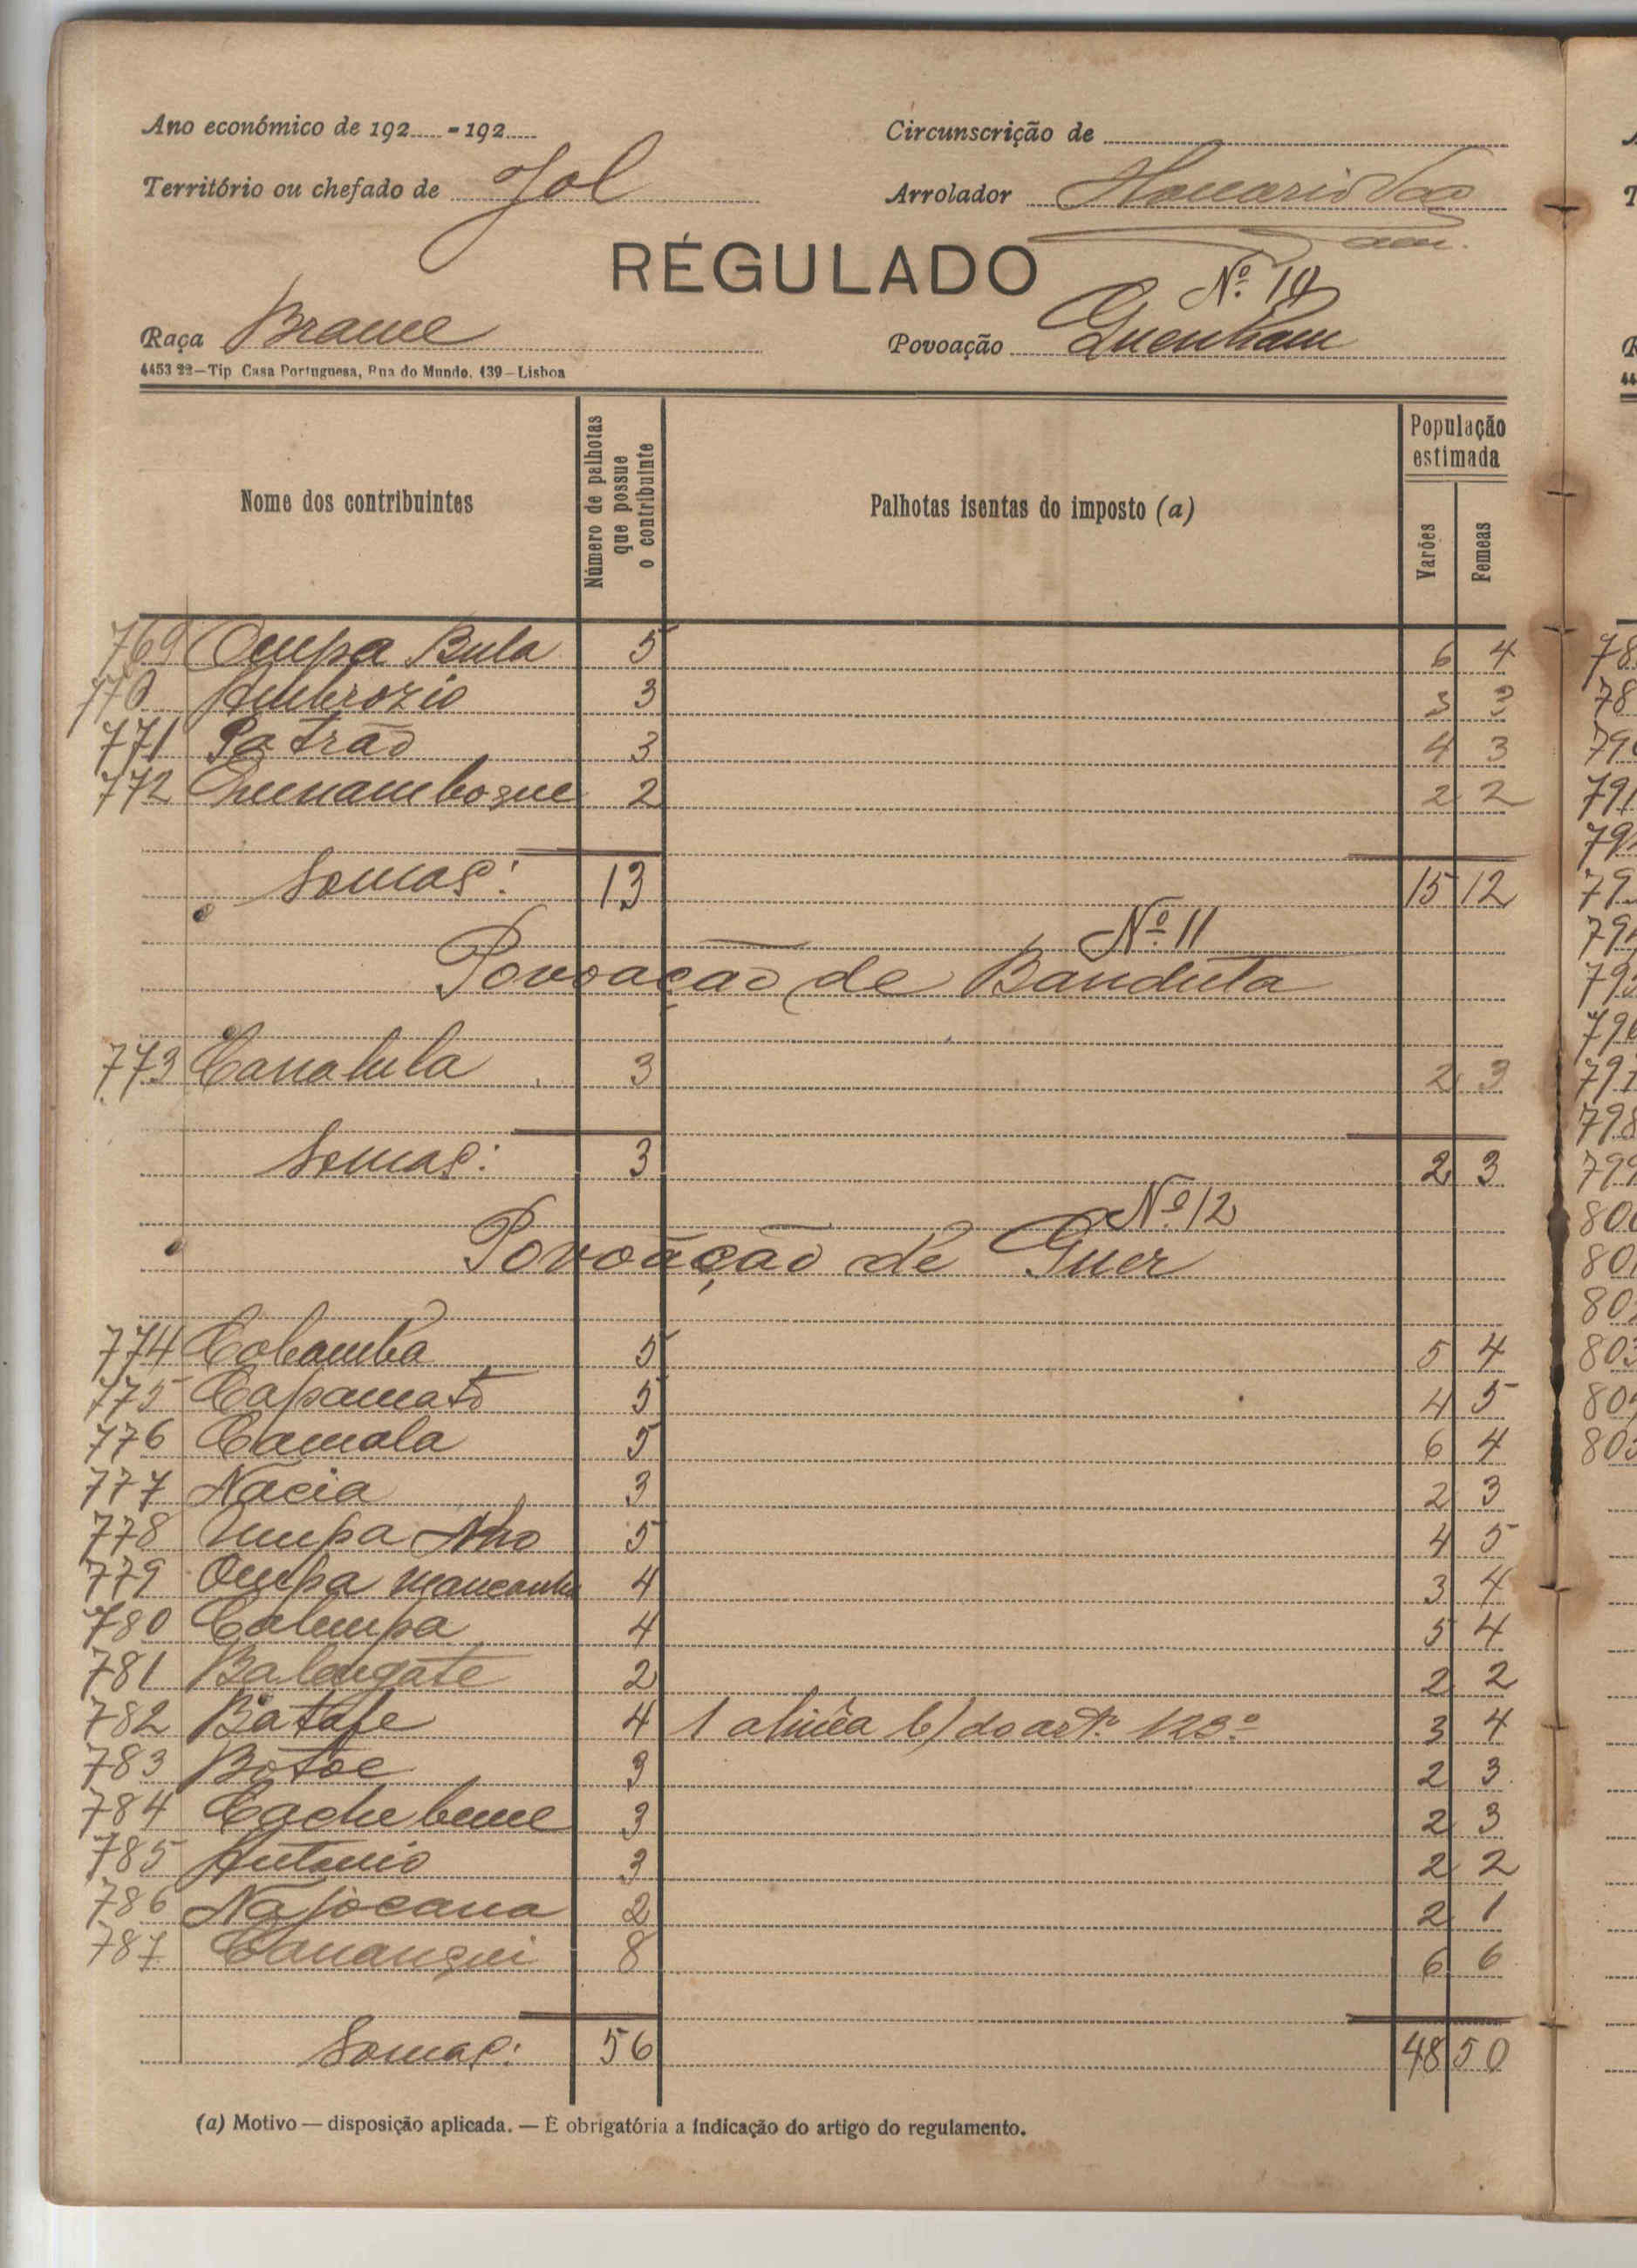 Ano económico de 192 - 192
Circunscrição de
Território ou chefado de Jol
Arrolador Honorio Vaz
RÉGULADO
Nº 10
Raça Brame
Povoação Guenham
4453 22—Tip Casa Portuguesa, Rua do Mundo, 139—Lisboa
Nome dos contribuintes
Número de palhotas que possue o contribuinte
Palhotas isentas do imposto (a)
População estimada
Varões
Femeas
769 Oumpa Bula 5 6 4
770 Ambrozio 3 3 3
771 Patrão 3 4 3
772 2 2 2
Somas: 13 15 12
Nº 11
Povoação de Banduta
773 Canalula 3 2 3
Somas: 3 2 3
Nº 12
Povoação de Guer
774 Colamba 5 5 4
775 Capamato 5 4 5
776 Camala 5 6 4
777 Nacia 3 2 3
778 5 4 5
779 Oumpa mancanha 4 3 4
780 Calumpa 4 5 4
781 Balengate 2 2 2
782 Batafe 4 1 alinêa b) do artº 123º 3 4
783 Botoe 3 2 3
784 Cachubume 3 2 3
785 Antonio 3 2 2
786 Najocana 2 2 1
787 Cananqui 8 6 6
Somas: 56 48 50
(a) Motivo — disposição aplicada. — É obrigatória a indicação do artigo do regulamento.